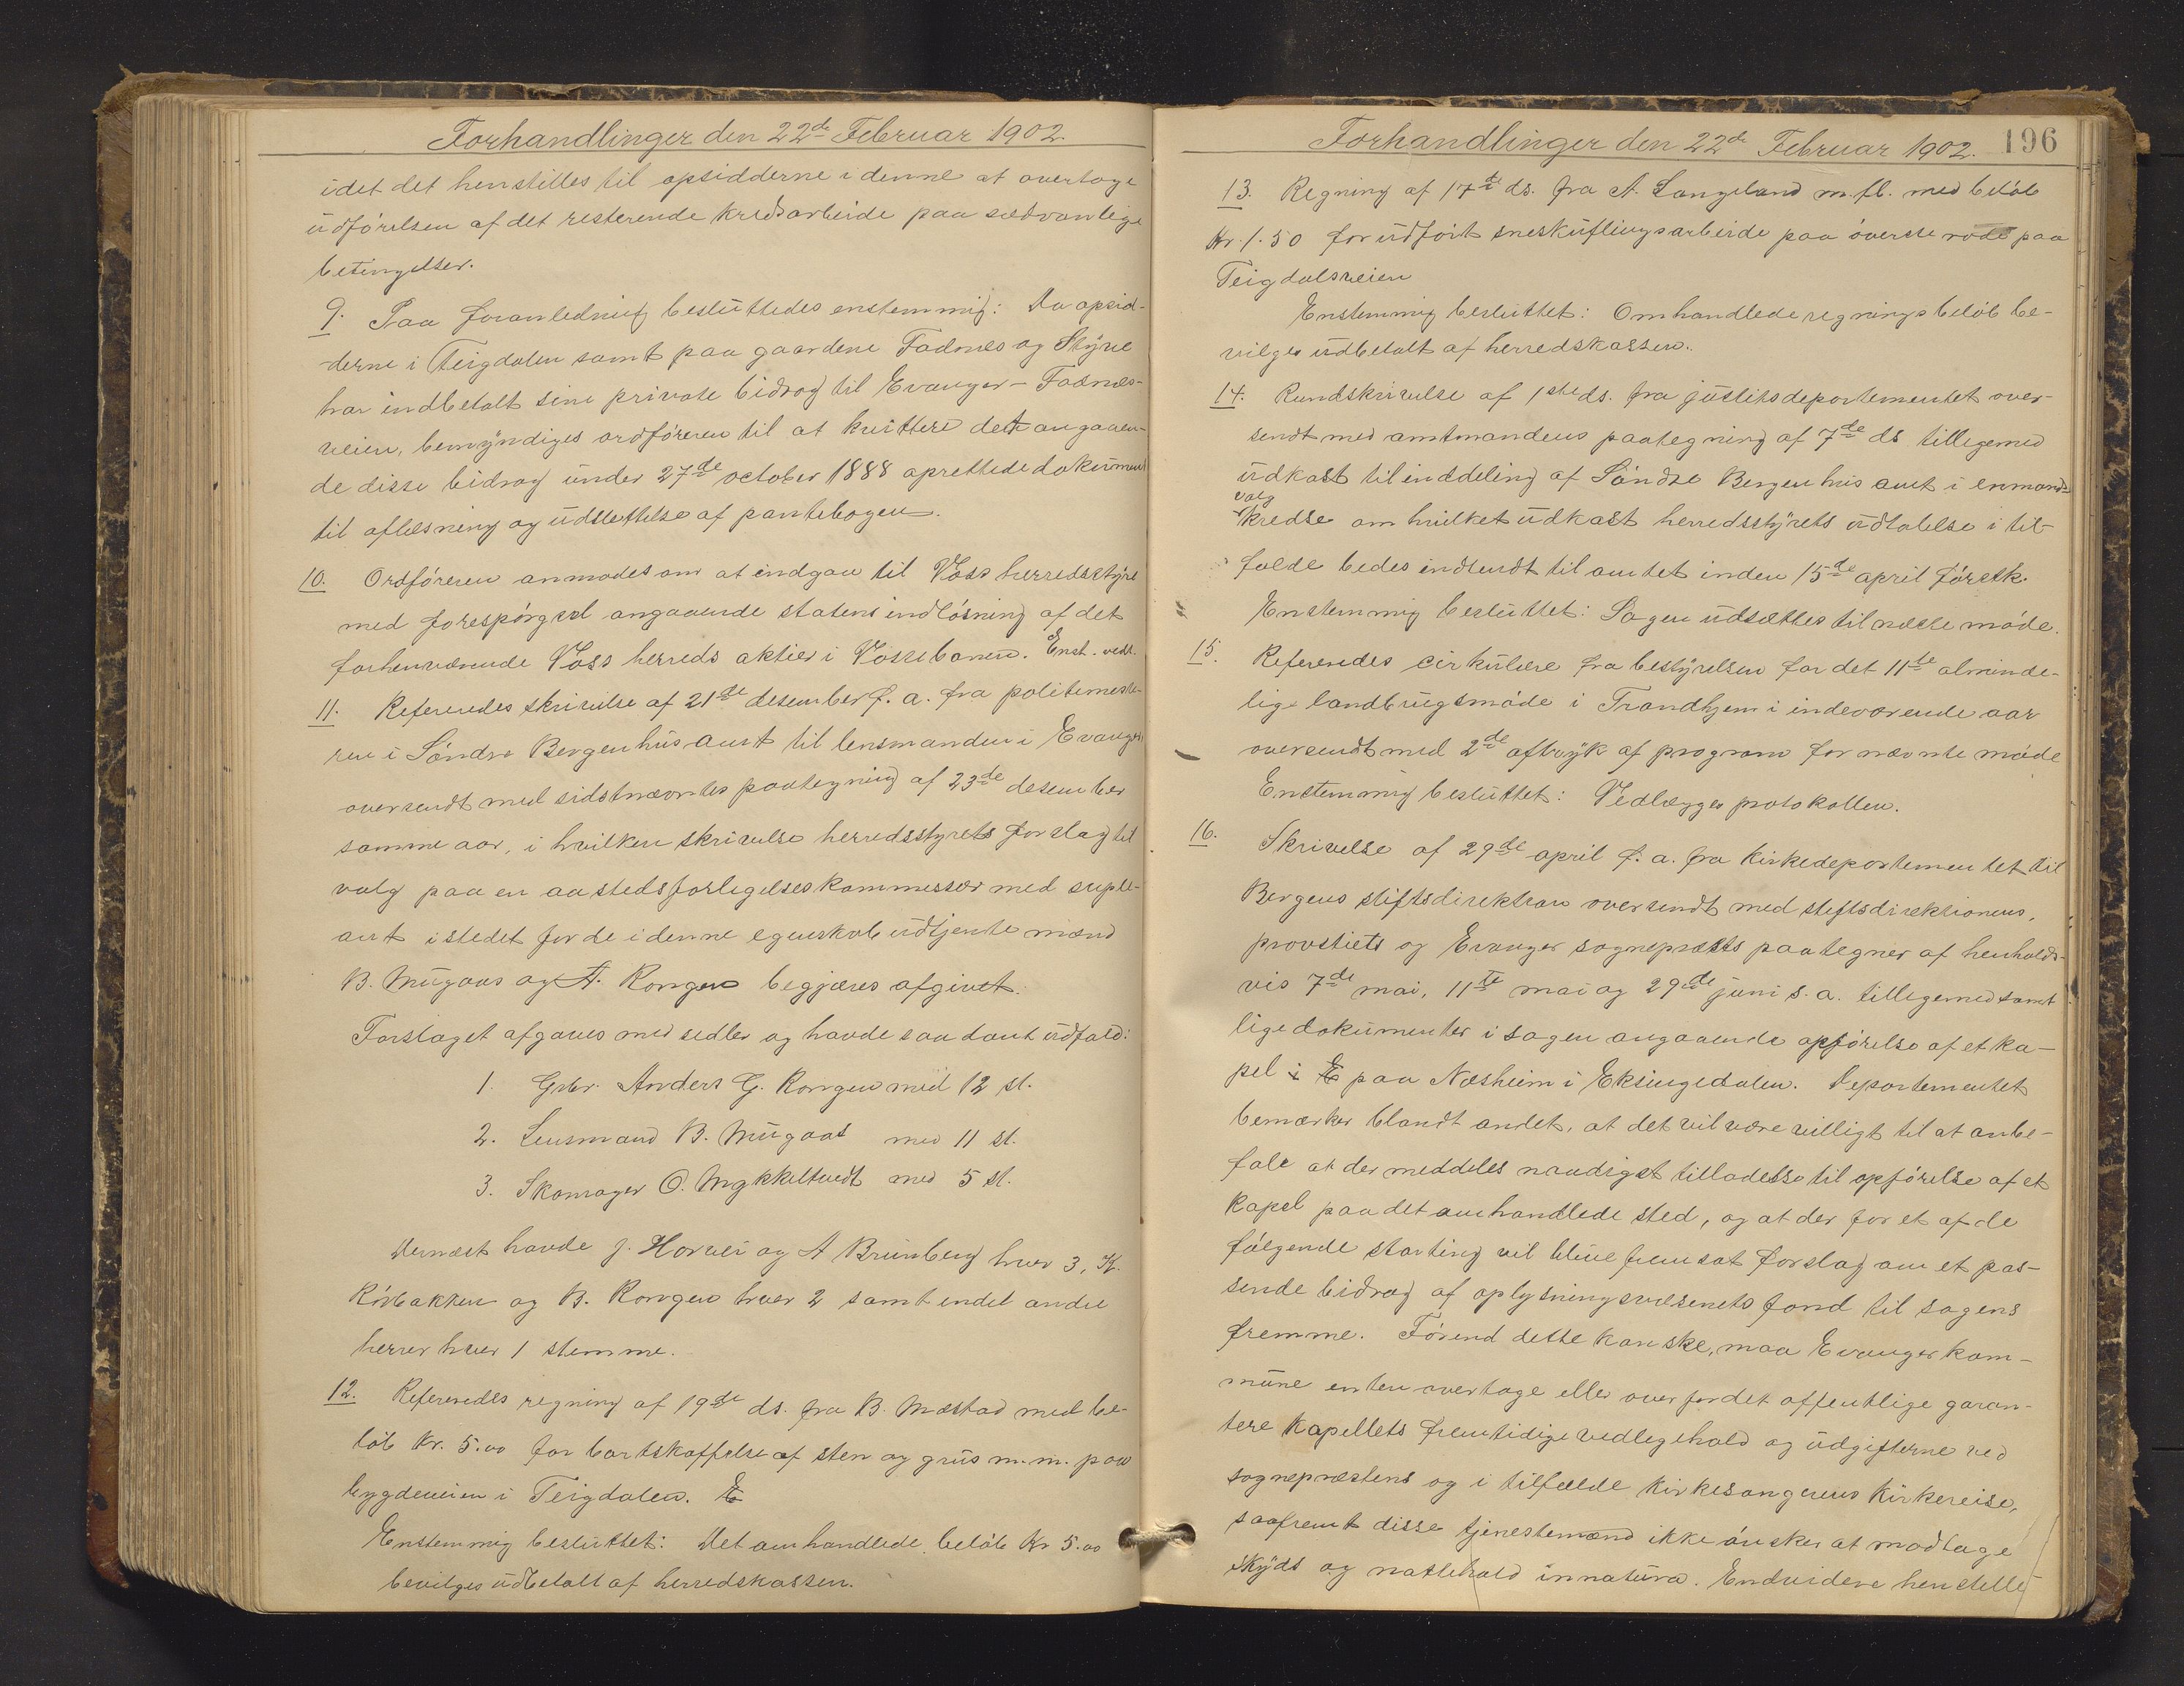 Forhandlinger den 22de Februar 1902.
idet det henstilles til opsidderne i denne at overtage
udførelsen af det resterende kredsarbeide paa sædvanlige
betingelser.
9. Paa foranledning besluttedes enstemmig: Da opsid-
derne i Teigdalen samt paa gaardene Fadnes og Styve
har indbetalt sine private bidrag til Evanger - Fadnes-
veien, bemyndiges ordføreren til at kvittere det angaaen-
de disse bidrag under 27de october 1888 oprettede dokument
til aflæsning og udslettelse af pantebogen.
10. Ordføreren anmodes om at indgaa til Voss herredsstyre
med forespørgsel angaaende statens indløsning af det
forhenværende Voss herreds aktier i Vossebanen. Enst. vedt.
11. Refereredes skrivelse af 21de desember f. a. fra politimeste-
ren i Søndre Bergenhus amt til lensmanden i Evanger
oversendt med sidstnævntes paategning af 23de desember
samme aar, i hvilken skrivelse herredsstyrets forslag til
valg paa en aastedsforligelseskommissær med suple-
ant istedet for de i denne egenskab udtjente mænd
B. Mugaas og A. Rongen begjæres afgivet.
Forslaget afgaves med sedler og havde saadant udfald:
1. Grbr. Anders G. Rongen med 12 st.
2. Lensmand B. Mugaas med 11 st.
3. Skomager O. Mykkeltvedt med 5 st.
Dernæst havde J. Horvei og A Brunberg hver 3, K.
Rørbakken og B. Rongen hver 2 samt endel andre
herrer hver 1 stemme.
12. Refereredes regning af 19de ds. fra B. Mestad med be-
løb Kr. 5.00 for bortskaffelse af sten og grus m. m. paa
bygdeveien i Teigdalen. E
Enstemmig besluttet: Det omhandlede beløb Kr 5.00
bevilges udbetalt af herredskassen.
Forhandlinger den 22de Februar 1902. 196
13. Regning af 17de ds. fra A. Langeland m. fl. med beløb
Kr. 1.50 for udført sneskuflingsarbeide paa øverste rode paa
Teigdalsveien
Enstemmig besluttet: Omhandlede regningsbeløb be-
vilges udbetalt af herredskassen.
14. Rundskrivelse af 1ste ds. fra justitsdepartementet over-
sendt med amtmandens paategning af 7de ds tilligemed
udkast til inddeling af Søndre Bergenhus amt i enmands-
valg
kredse om hvilket udkast herredsstyrets udtalelse i til-
fælde bedes indsendt til amtet inden 15de april førstk.
Enstemmig besluttet: Sagen udsættes til næste møde.
15. Refereredes cirkulære fra bestyrelsen for det 11te alminde-
lige landbrugsmøde i Trondhjem i indeværende aar
oversendt med 2de aftryk af program for nævnte møde
Enstemmig besluttet: Vedlægges protokollen.
16. Skrivelse af 29de april f. a. fra kirkedepartementet til
Bergens stiftsdirektion oversendt med stiftsdirektionens,
provstiets og Evanger sogneprests paategner af henholds-
vis 7de mai, 11te mai og 29de juni s. a. tilligemed samt
lige dokumenter i sagen angaaende opførelse af et ka-
pel i E paa Nesheim i Eksingedalen. Departementet
bemærker blandt andet, at det vil være villigt til at anbe-
fale at der meddeles naadigst tilladelse til opførelse af et
kapel paa det omhandlede sted, og at der for et af de
følgende storting vil blive fremsat forslag om et pas-
sende bidrag af oplysningsvæsenets fond til sagens
fremme. Førend dette kan ske, maa Evanger kom-
mune enten overtage eller overfor det offentlige garan-
tere kapellets fremtidige vedligehold og udgifterne ved
sogneprestens og i tilfælde kirkesangerens kirkereise,
saafremt disse tjenestemænd ikke ønsker at modtage
skyds og nattehold in natura. Endvidere henstille